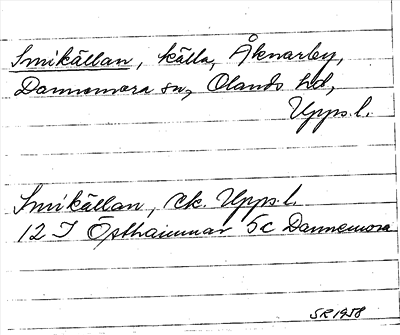 Smikällan, källa, Åknarby,
Dannemora sn, Olands hd,
Upps. l.
Smikällan, ek. Upps. l.
12 I Östhammar 5c Dannemora
SR 1958